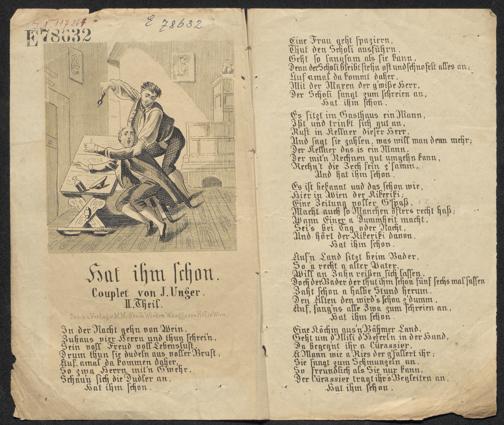 E 78632
E78632
Hat ihm schon.
Couplet von J. Unger.
II. Theil.
In der Nacht gehn von Wein
Zuhaus vier Herrn und thun schrein.
Sein voll Freud voll Lebenslust,
Drum thun sie dudeln aus voller Brust,
Auf amal da kommen daher,
So zwa Herrn mit'n G'wehr.
Schaun sich die Dudler an.
Hat ihm schon.
Eine Frau geht spaziern,
Thut den Scholi ausführn.
Geht so langsam als sie kann,
Denn der Scholi bleibt stehn oft und schnofelt alles an;
Auf amal da kommt daher,
Mit der Maxen der g'wiße Herr,
Der Scholi fangt zum schreien an,
Hat ihm schon.
Es sitzt im Gasthaus ein Mann,
Ißt und trinkt sich gut an,
Ruft in Kellner dieser Herr,
Und sagt sie zahlen, was will man denn mehr;
Der Kellner das is ein Mann,
Der mit'n Rechnen gut umgehn kann,
Rechn't die Zech sein z'samm,
Und hat ihm schon.
Es ist bekannt und das schon wie,
Hier in Wien der Kikeriki;
Eine Zeitung voller G'spaß,
Macht auch so Manchen öfters recht haß;
Wann Einer a Dummheit macht,
Sei's bei Tag oder Nacht,
Und hört der Kikeriki davon,
Hat ihm schon.
Auf'n Land sitzt beim Bader,
So a recht a alter Vater,
Will an Zahn reißen sich lassen,
Doch der Bader der thut ihm schon fünf sechs mal fassen
Zaht schon a halbe Stund herum,
Den Alten den wird's schon z'dumm,
Auf, fangt's alle zwa zum schreien an,
Hat ihm schon.
Eine Köchin aus'n Böhmer Land,
Geht um d'Milli d'Heferln in der Hand,
Da begegnt ihr a Cürassier,
A Mann wie a Ries der g'fallert ihr;
Sie fangt zum Schmunzeln an,
So freundlich als Sie nur kann,
Der Cürassier tragt ihr's Begleiten an,
Hat ihm schon.